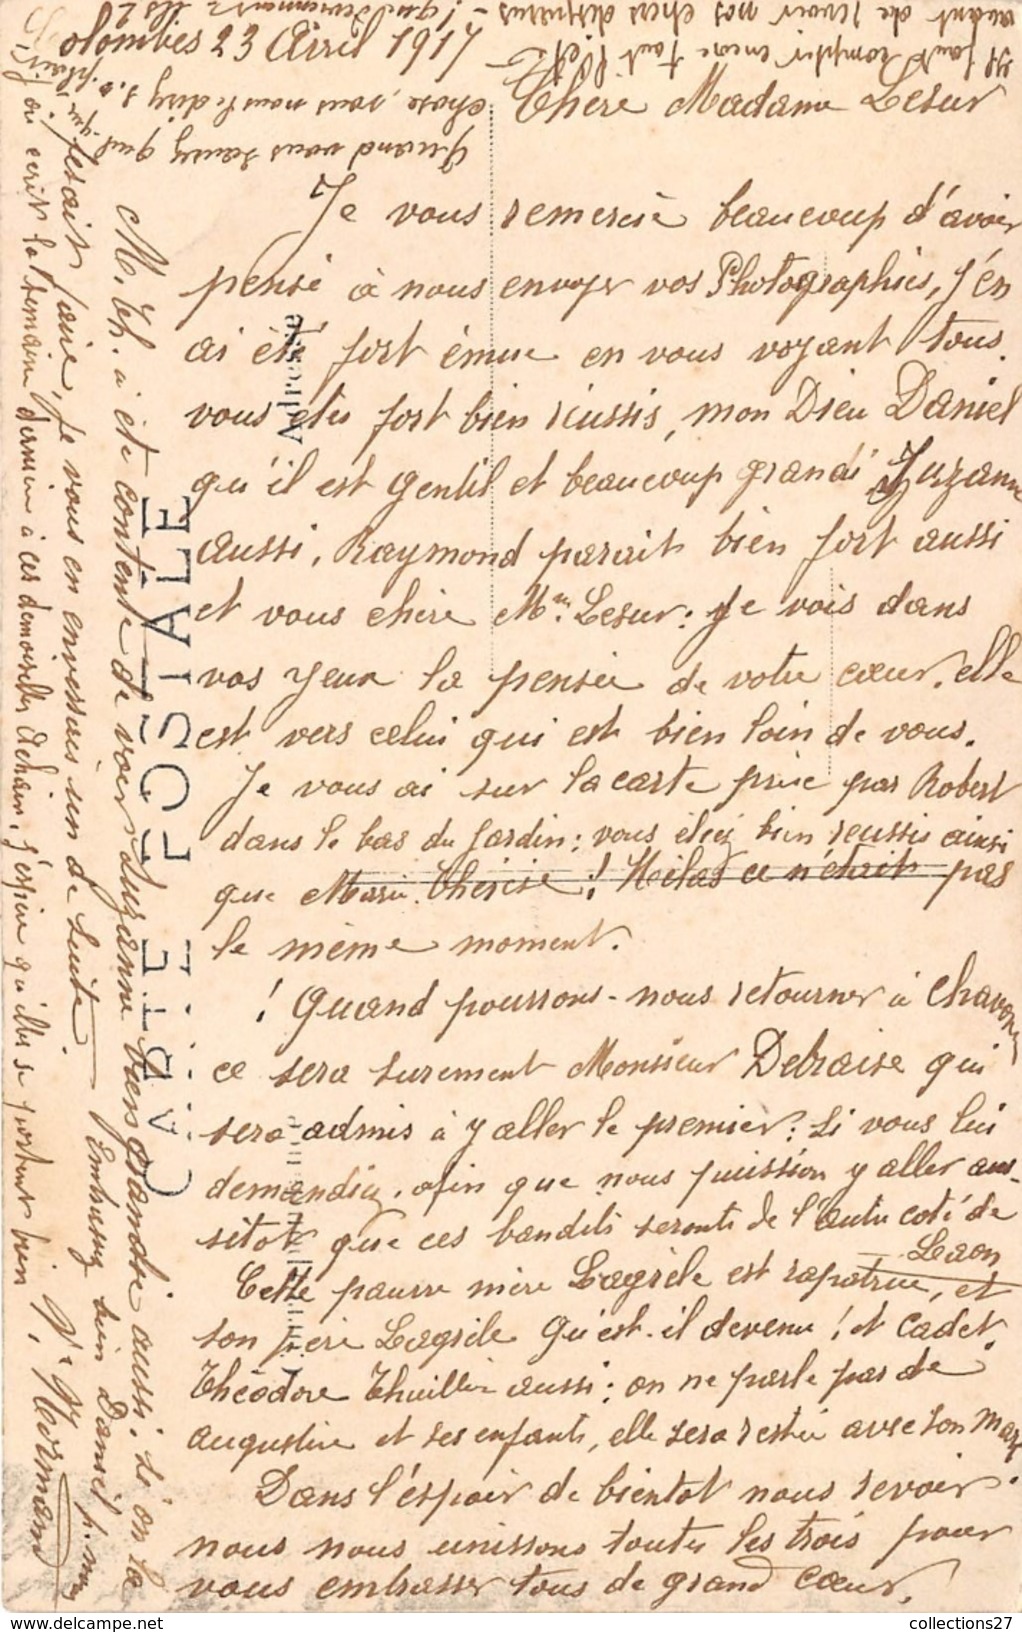 Colombes 23 Avril 1917
Chère Madame Lesur
Je vous remercie beaucoup d'avoir
pensé à nous envoyer vos Photographies, j'en
ai été fort émue en vous voyant tous.
vous etes fort bien réussis, mon Dieu Daniel
qu'il est gentil et beaucoup grandi Suzanne
aussi, Raymond parait bien fort aussi
et vous chère Mme Lesur: je vois dans
vos yeux la pensée de votre cœur, elle
est vers celui qui est bien loin de vous.
Je vous ai sur la carte prise par Robert
dans le bas du Jardin: vous étiez bien reussis ainsi
que Marie Thérèse! Hélas ce n'était pas
le même moment.
! Quand pourrons-nous retourner à
ce sera surement Monsieur Debraise qui
sera admis à y aller le premier: si vous lui
demandiez, afin que nous puission y aller aus-
sitot que ces bandits seront de l'autre coté de
Laon
Cette pauvre mère Lagrèle est rapatriée, et
son père Lagrèle Qu'est-il devenu! et Cadet,
Théodore Thuillier aussi: on ne parle pas de
Augustine et ses enfants, elle sera restée avec son mari
Dans l'éspoir de bientot nous revoir
nous nous unissons toutes les trois pour
vous embrasser tous de grand cœur,
M. Th. a été contente de voir Suzanne bien grandie aussi. Si on la
fesait faire, je vous en enverrais un de suite. Embrassez bien Daniel p. moi
J'ai ecrit la semaine dernière à ces demoiselles Dehain, j'espère qu'elles se portent bien,
Vve Normand
Quand vous saurez quel
chose, vous nous le direz s.v. plait
il faut compter encore tout l'été
avant de revoir nos chers disparus - !
CARTE POSTALE
Adresse
collections27